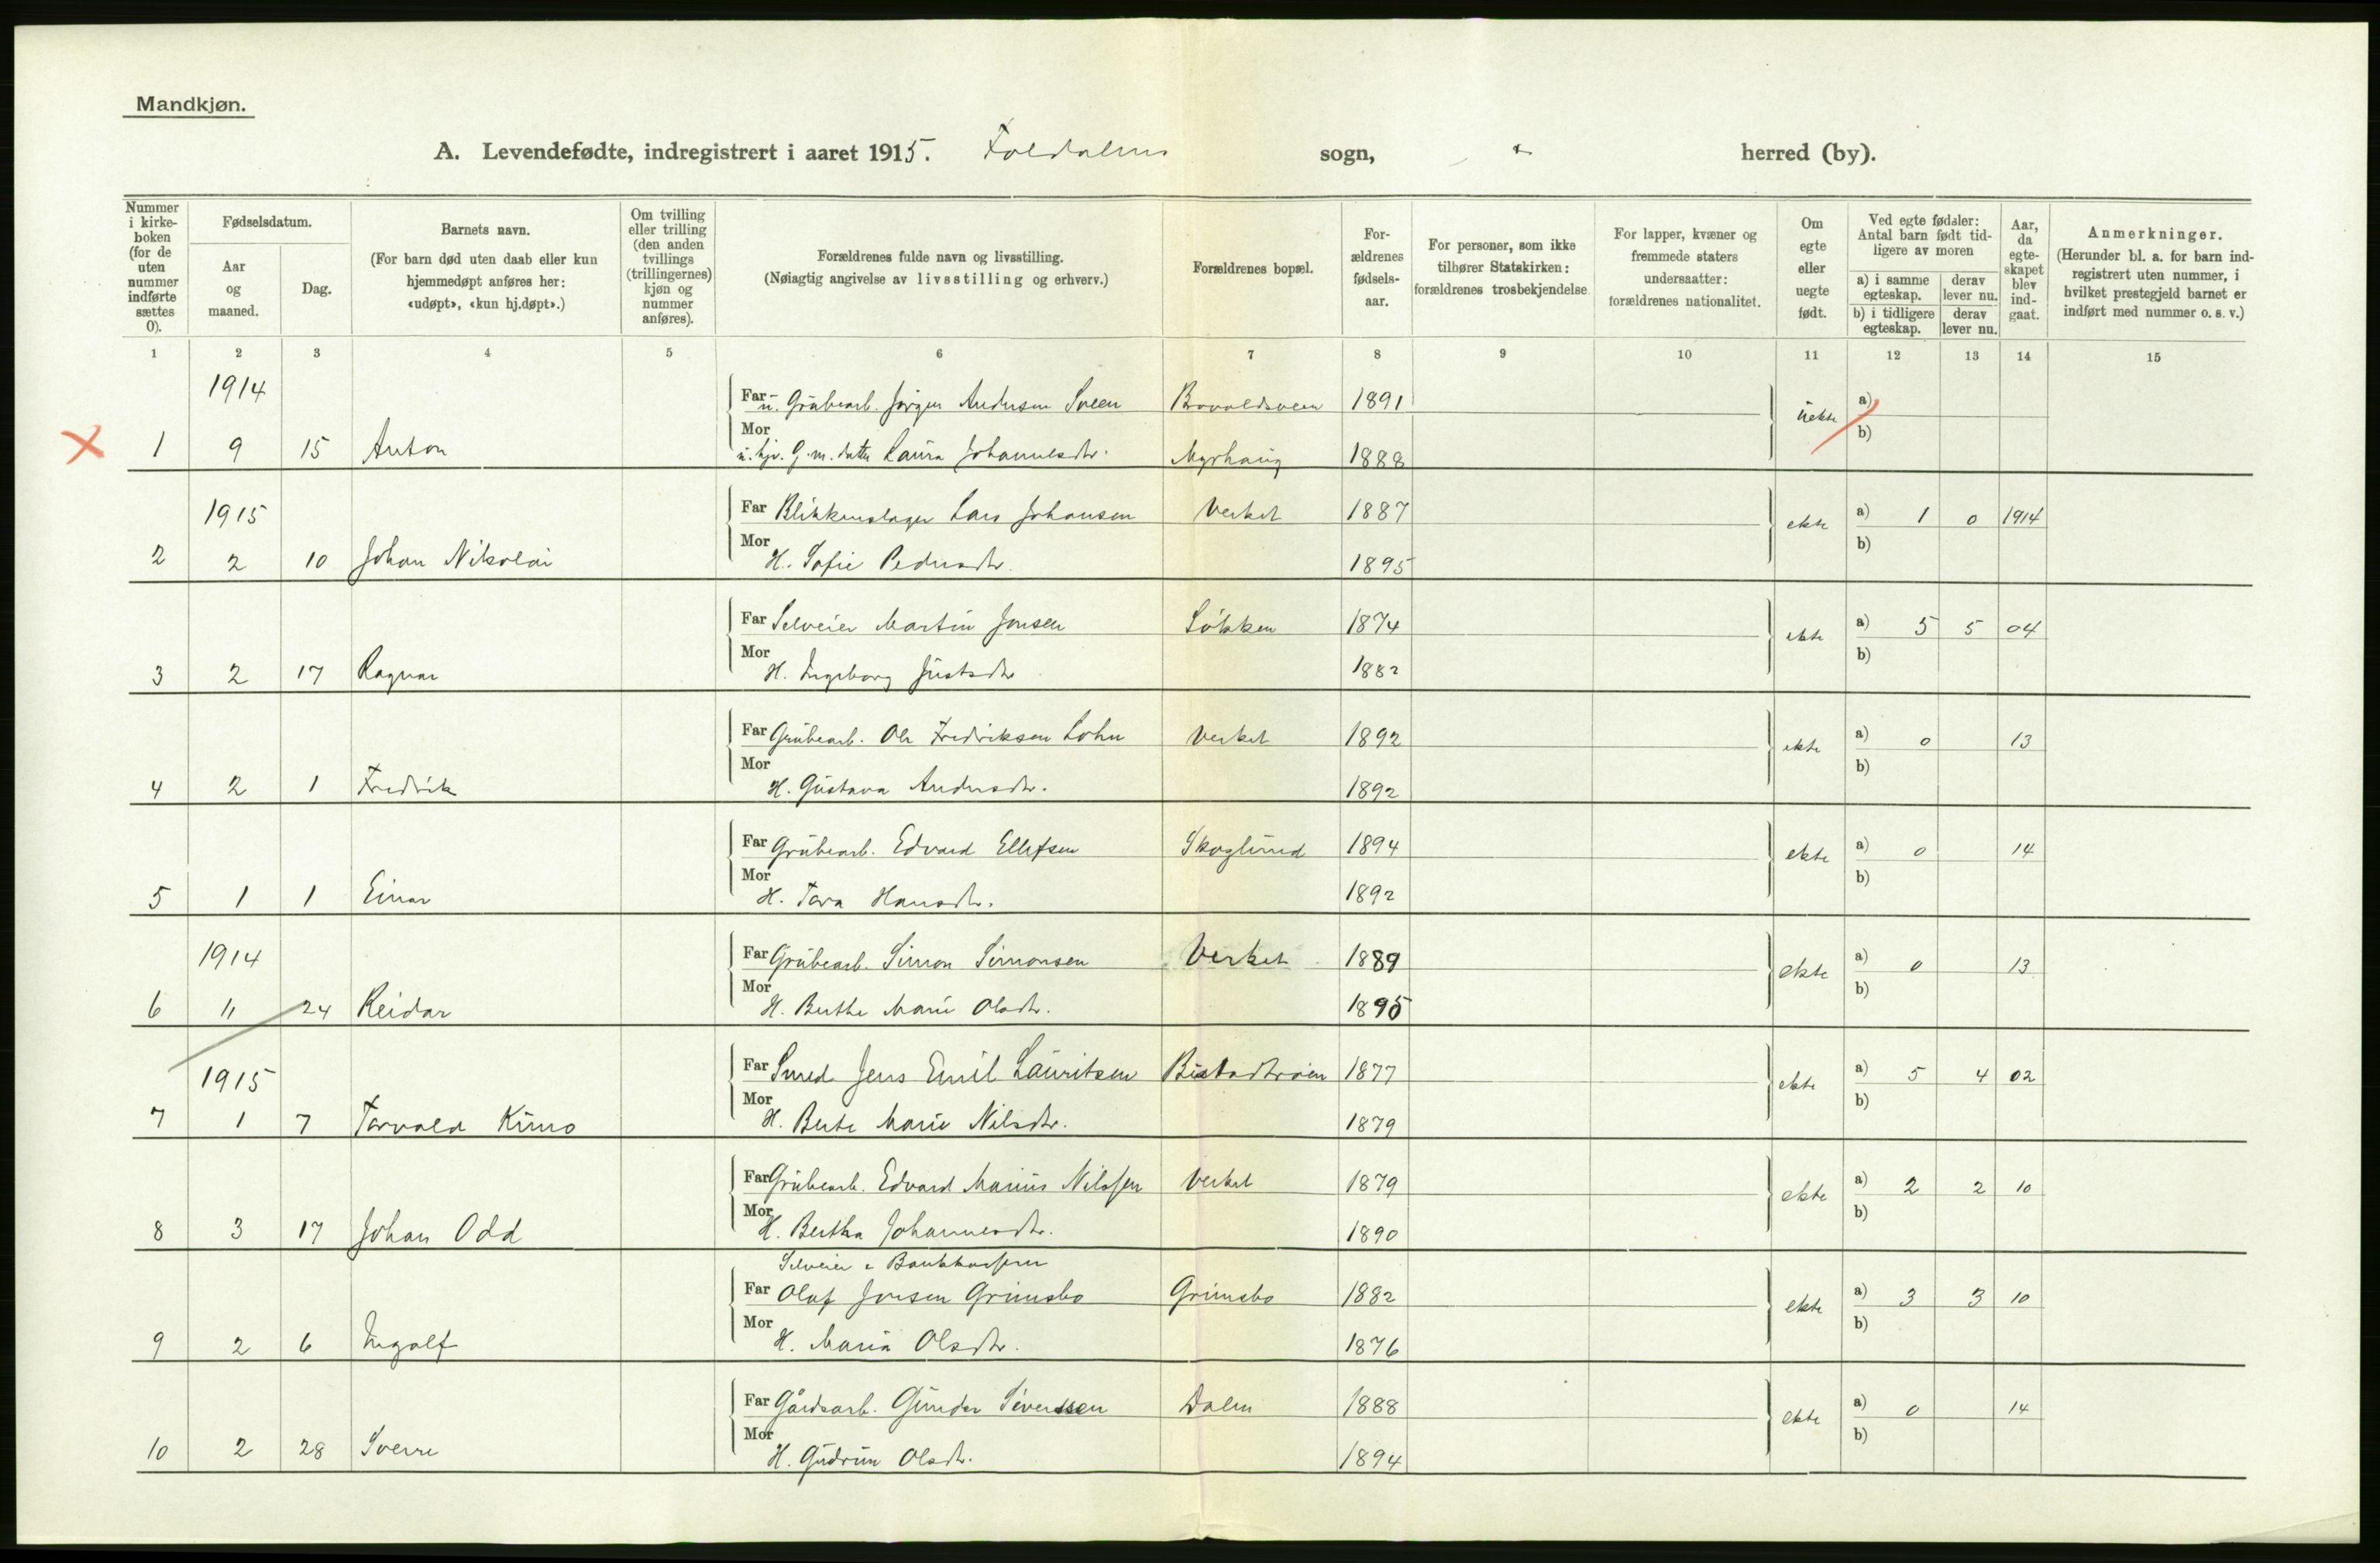 Mandkjøn.
A. Levendefødte, indregistrert i aaret 1915. Foldalens sogn, herred (by).
Nummer i kirkeboken (for de uten nummer indførte sættes 0).
Fødselsdatum.
Aar og maaned.
Dag.
Barnets navn.
(For barn død uten daab eller kun hjemmedøpt anføres her: «udøpt», «kun hj.døpt».)
Om tvilling eller trilling (den anden tvillings (trillingernes) kjøn og nummer anføres).
Forældrenes fulde navn og livsstilling.
(Nøiagtig angivelse av livsstilling og erhverv.)
Forældrenes bopæl.
Forældrenes fødselsaar.
For personer, som ikke tilhører Statskirken: forældrenes trosbekjendelse
For lapper, kvæner og fremmede staters undersaatter: forældrenes nationalitet.
Om egte eller uegte født.
Ved egte fødsler: Antal barn født tidligere av moren
a) i samme egteskap. derav lever nu.
b) i tidligere egteskap. derav lever nu.
Aar, da egteskapet blev indgaat.
Anmerkninger.
(Herunder bl. a. for barn indregistrert uten nummer, i hvilket prestegjeld barnet er indført med nummer o. s. v.)
1 2 3 4 5 6 7 8 9 10 11 12 13 14 15
1914
Far u. Grubearb. Jørgen Andersen Sveen 1891 uekte a)
X 1 9 15 Anton Mor u. hjv. G.m. datter Laura Johannesdtr. Myrhaug 1888 b)
1915
Far Blikkenslager Lars Johansen Verket 1887 ekte a) 1 0 1914
2 2 10 Johan Nikolai Mor H. Sofie Pedersdtr. 1895 b)
Far Selveier Martin Jonsen Løkken 1874 ekte a) 5 5 04
3 2 17 Ragnar Mor H. Ingeborg Justsdtr 1882 b)
Far Grubearb. Ole Fredriksen Lohn Verket 1892 ekte a) 0 13
4 2 1 Fredrik Mor H. Gustava Andersdtr. 1892 b)
Far Grubearb. Edvard Ellefsen Skoglund 1894 ekte a) 0 14
5 1 1 Einar Mor H. Tora Hansdtr. 1892 b)
1914
Far Grubearb. Simon Simonsen Verket 1889 ekte a) 0 13
6 11 24 Reidar Mor H. Berthe Marie Olsdtr. 1895 b)
1915
Far Smed Jens Emil Lauritsen 1877 ekte a) 5 4 02
7 1 7 Torvald Mor H. Berte Marie Nilsdtr. 1879 b)
Far Grubearb. Edvard Marius Nilssen Verket 1879 ekte a) 2 2 10
8 3 17 Johan Odd Mor H. Bertha Johannesdtr. 1890 b)
Selveier & Bankkasserer
Far Olaf Jonsen Grimsbo Grimsbo 1882 ekte a) 3 3 10
9 2 6 Ingolf Mor H. Maria Olsdtr. 1876 b)
Far Gårdsarb. Gunder Sivertsen Dalen 1888 ekte a) 0 14
10 2 28 Sverre Mor H. Gudrun Olsdtr. 1894 b)